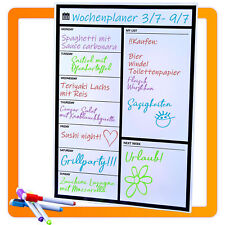 Wochenplaner 3/7- 9/7
MONDAY
Spaghetti mit
Sauce carbonara
TUESDAY
Ofenkartoffel
WEDNESDAY
Teriyaki Lachs
mit Reis
THURSDAY
Caesar Salat
mit Knoblauchbaguette
FRIDAY
Sushi night!
SATURDAY
Grillparty!!!
SUNDAY
Zucchini Lasagne
mit Mozzarella
MY LIST
!!Kaufen:
Bier
Windel
Toilettenpapier
Fleisch
Würstchen
Süßigkeiten
NEXT WEEK
Urlaub!